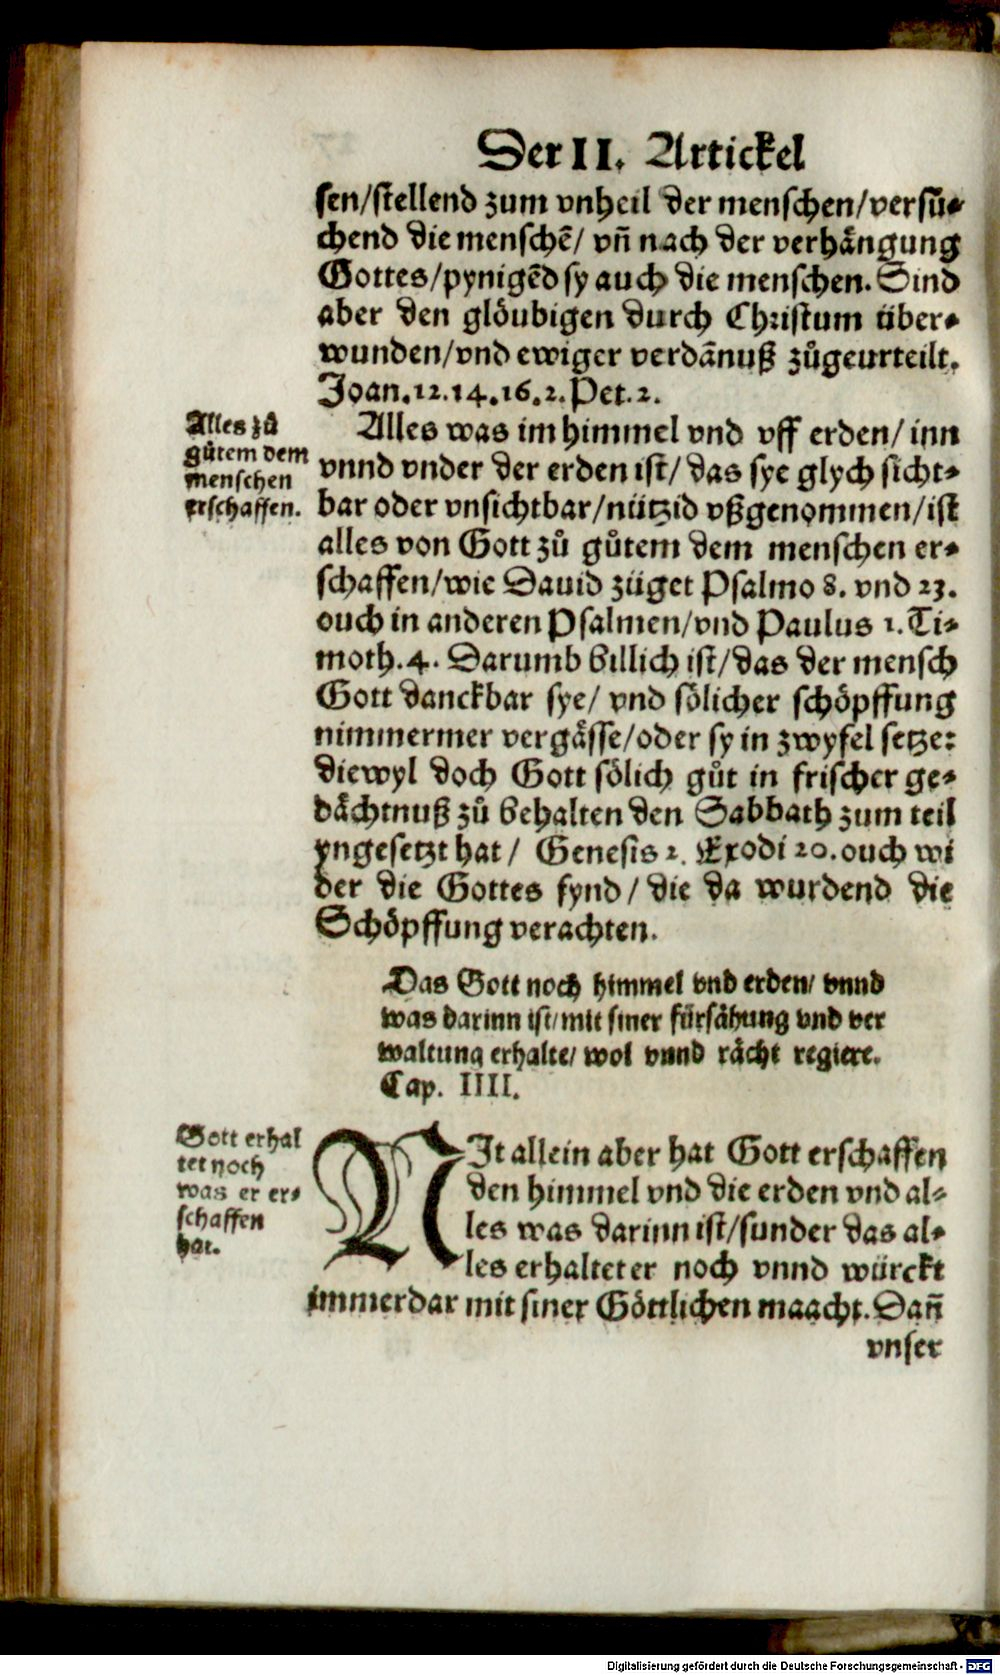 Der II. Artickel
sen/stellend zum vnheil der menschen/versů⸗
chend die menschẽ/ vñ nach der verhängung
Gottes/pynigẽd sy auch die menschen. Sind
aber den glöubigen durch Christum über⸗
wunden/vnd ewiger verdãnuß zůgeurteilt.
Joan.12.14.16.2.Pet.2.
Alles zů
gůtem dem
menschen
erschaffen.
Alles was im himmel vnd vff erden/ inn
vnnd vnder der erden ist/ das sye glych sicht⸗
bar oder vnsichtbar/nützid vßgenommen/ist
alles von Gott zů gůtem dem menschen er⸗
schaffen/wie Dauid züget Psalmo 8. vnd 23.
ouch in anderen Psalmen/vnd Paulus 1.Ti⸗
moth.4. Darumb billich ist/das der mensch
Gott danckbar sye/ vnd sölicher schöpffung
nimmermer vergässe/oder sy in zwyfel setze:
diewyl doch Gott sölich gůt in frischer ge⸗
dächtnuß zů behalten den Sabbath zum teil
yngesetzt hat/ Genesis 2. Exodi 20.ouch wi
der die Gottes fynd/ die da wurdend die
Schöpffung verachten.
Das Gott noch himmel vnd erden/ vnnd
was darinn ist/mit siner fürsähung vnd ver
waltung erhalte/ wol vnnd rächt regiere.
Cap. IIII.
Gott erhal
tet noch
was er er⸗
schaffen
hat.
NIt allein aber hat Gott erschaffen
den himmel vnd die erden vnd al⸗
les was darinn ist/sunder das al⸗
les erhaltet er noch vnnd würckt
immerdar mit siner Göttlichen maacht. Dañ
vnser
Digitalisierung gefördert durch die Deutsche Forschungsgemeinschaft - DFG